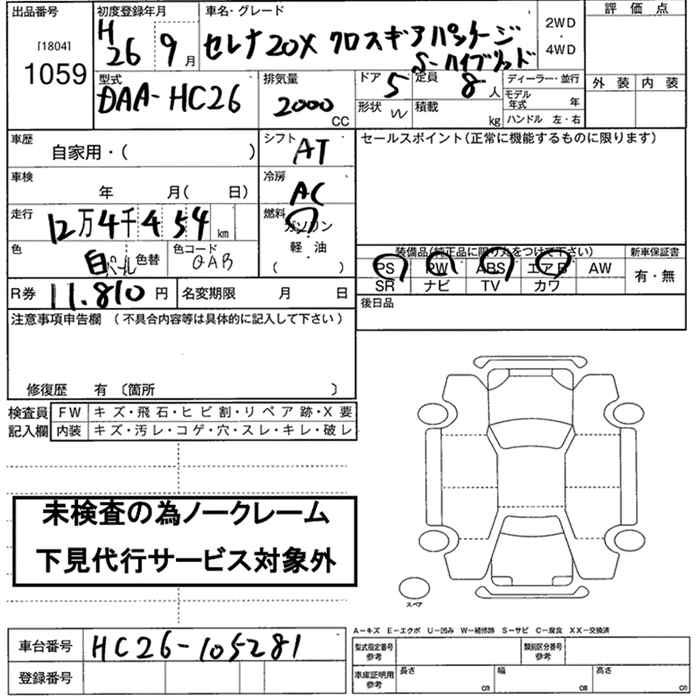 出品番号 初度登録年月 車名・グレード 評価点
[1804] H 26 9月 セレナ20X クロスギアパッケージ 2WD・4WD
1059 S-ハイブリッド
型式 排気量 ドア 5 定員 8人 ディーラー・並行 外装 内装
DAA-HC26 2000CC 形状 W 積載 kg モデル年式 年
ハンドル 左・右
車歴 シフト セールスポイント(正常に機能するものに限ります)
自家用・( ) AT
車検 冷房
年 月( 日) AC
走行 燃料
12万4千454km ガソリン
軽・油
( )
色 色替 色コード 装備品(純正品に限り丸をつけて下さい) 新車保証書
白パール QAB PS PW ABS エアB AW 有・無
SR ナビ TV カワ
R券 11,810円 名変期限 月 日 後日品
注意事項申告欄(不具合内容等は具体的に記入して下さい)
修復歴 有 〔箇所 〕
検査員 FW キズ・飛石・ヒビ割・リペア跡・X要
記入欄 内装 キズ・汚レ・コゲ・穴・スレ・キレ・破レ
未検査の為ノークレーム
下見代行サービス対象外
スペア
A-キズ E-エクボ U-凹み W-補修跡 S-サビ C-腐食 XX-交換済
車台番号 HC26-105281 型式指定番号参考 類別区分番号参考
登録番号 車庫証明用参考 長さ cm 幅 cm 高さ cm